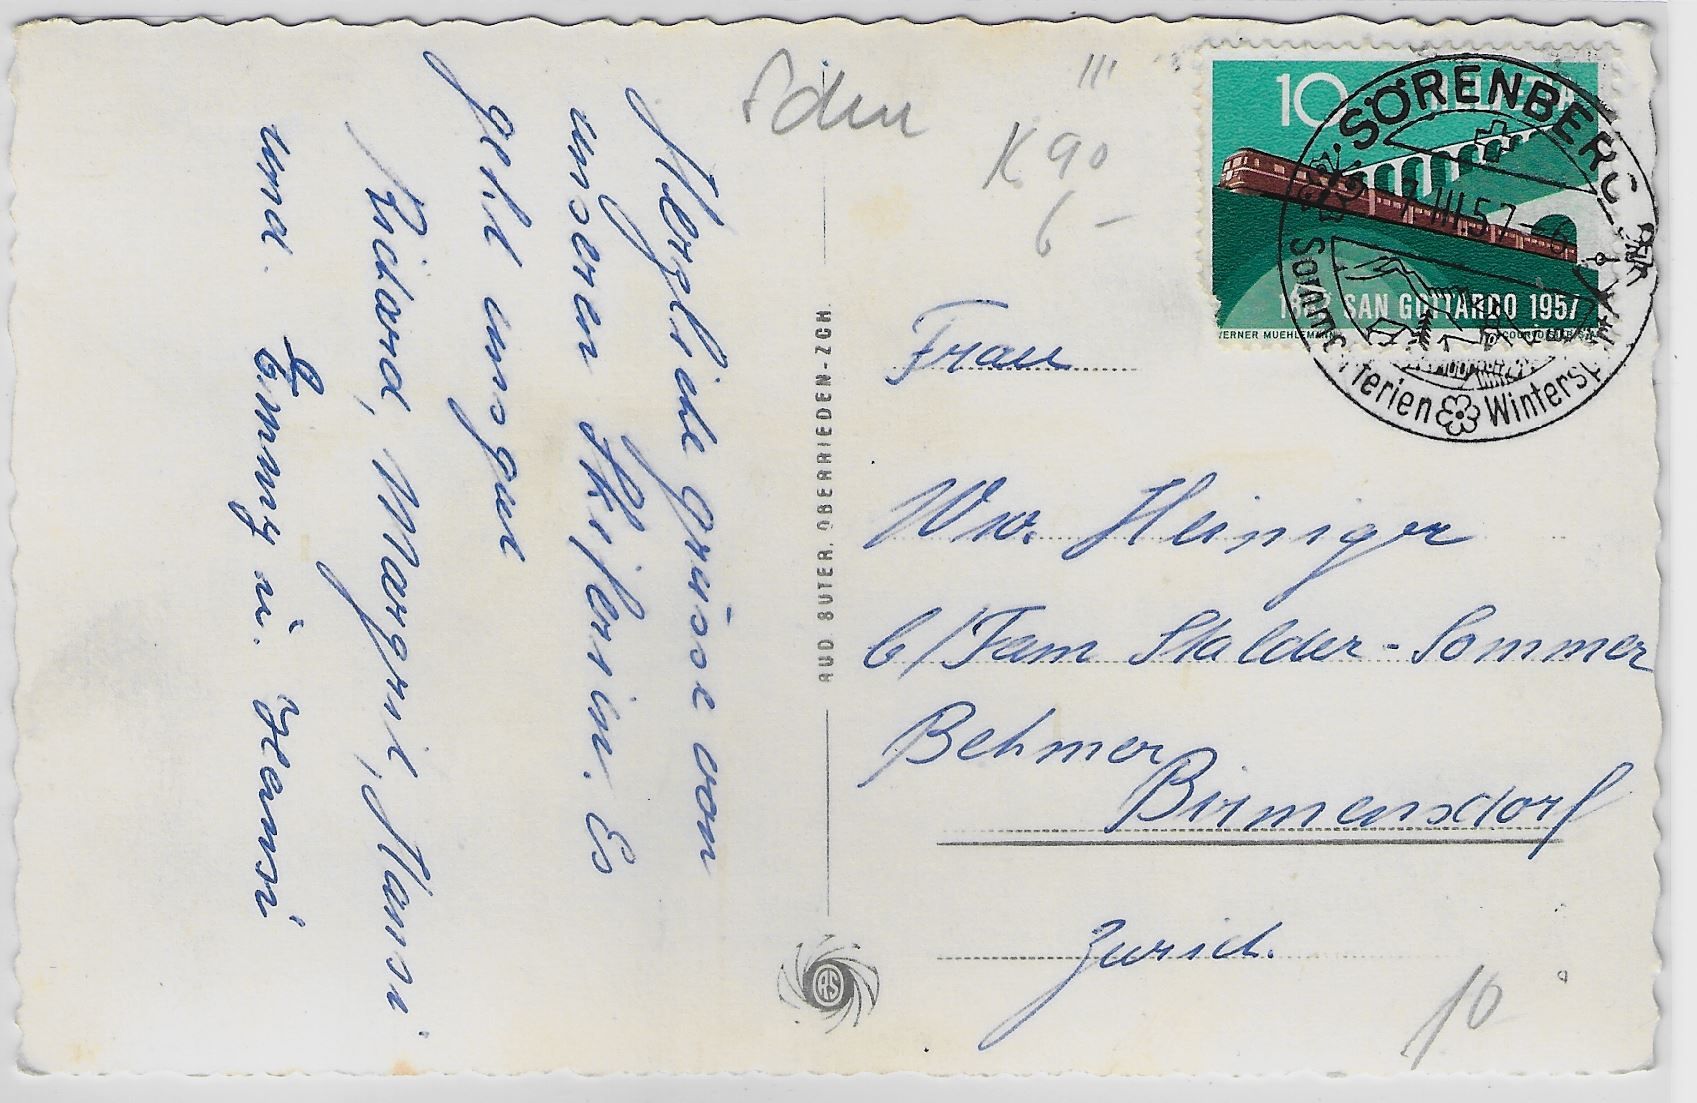 Herzliche grüsse von
unseren Skiferien. Es
geht uns gut
Richard, Margrit, Hansi
und Emmy u.
RUD SUTER, OBERRIEDEN-ZCH.
RS
III
K 90
6 -
10
SAN GOTTARDO 1957
WERNER MUEHLEMANN
SÖRENBERG
7.III.57-6
Sommerferien Wintersport
Frau
Ww. Heiniger
b/Fam Stalder-Sommer
Betmer
Birmensdorf
Zürich.
10